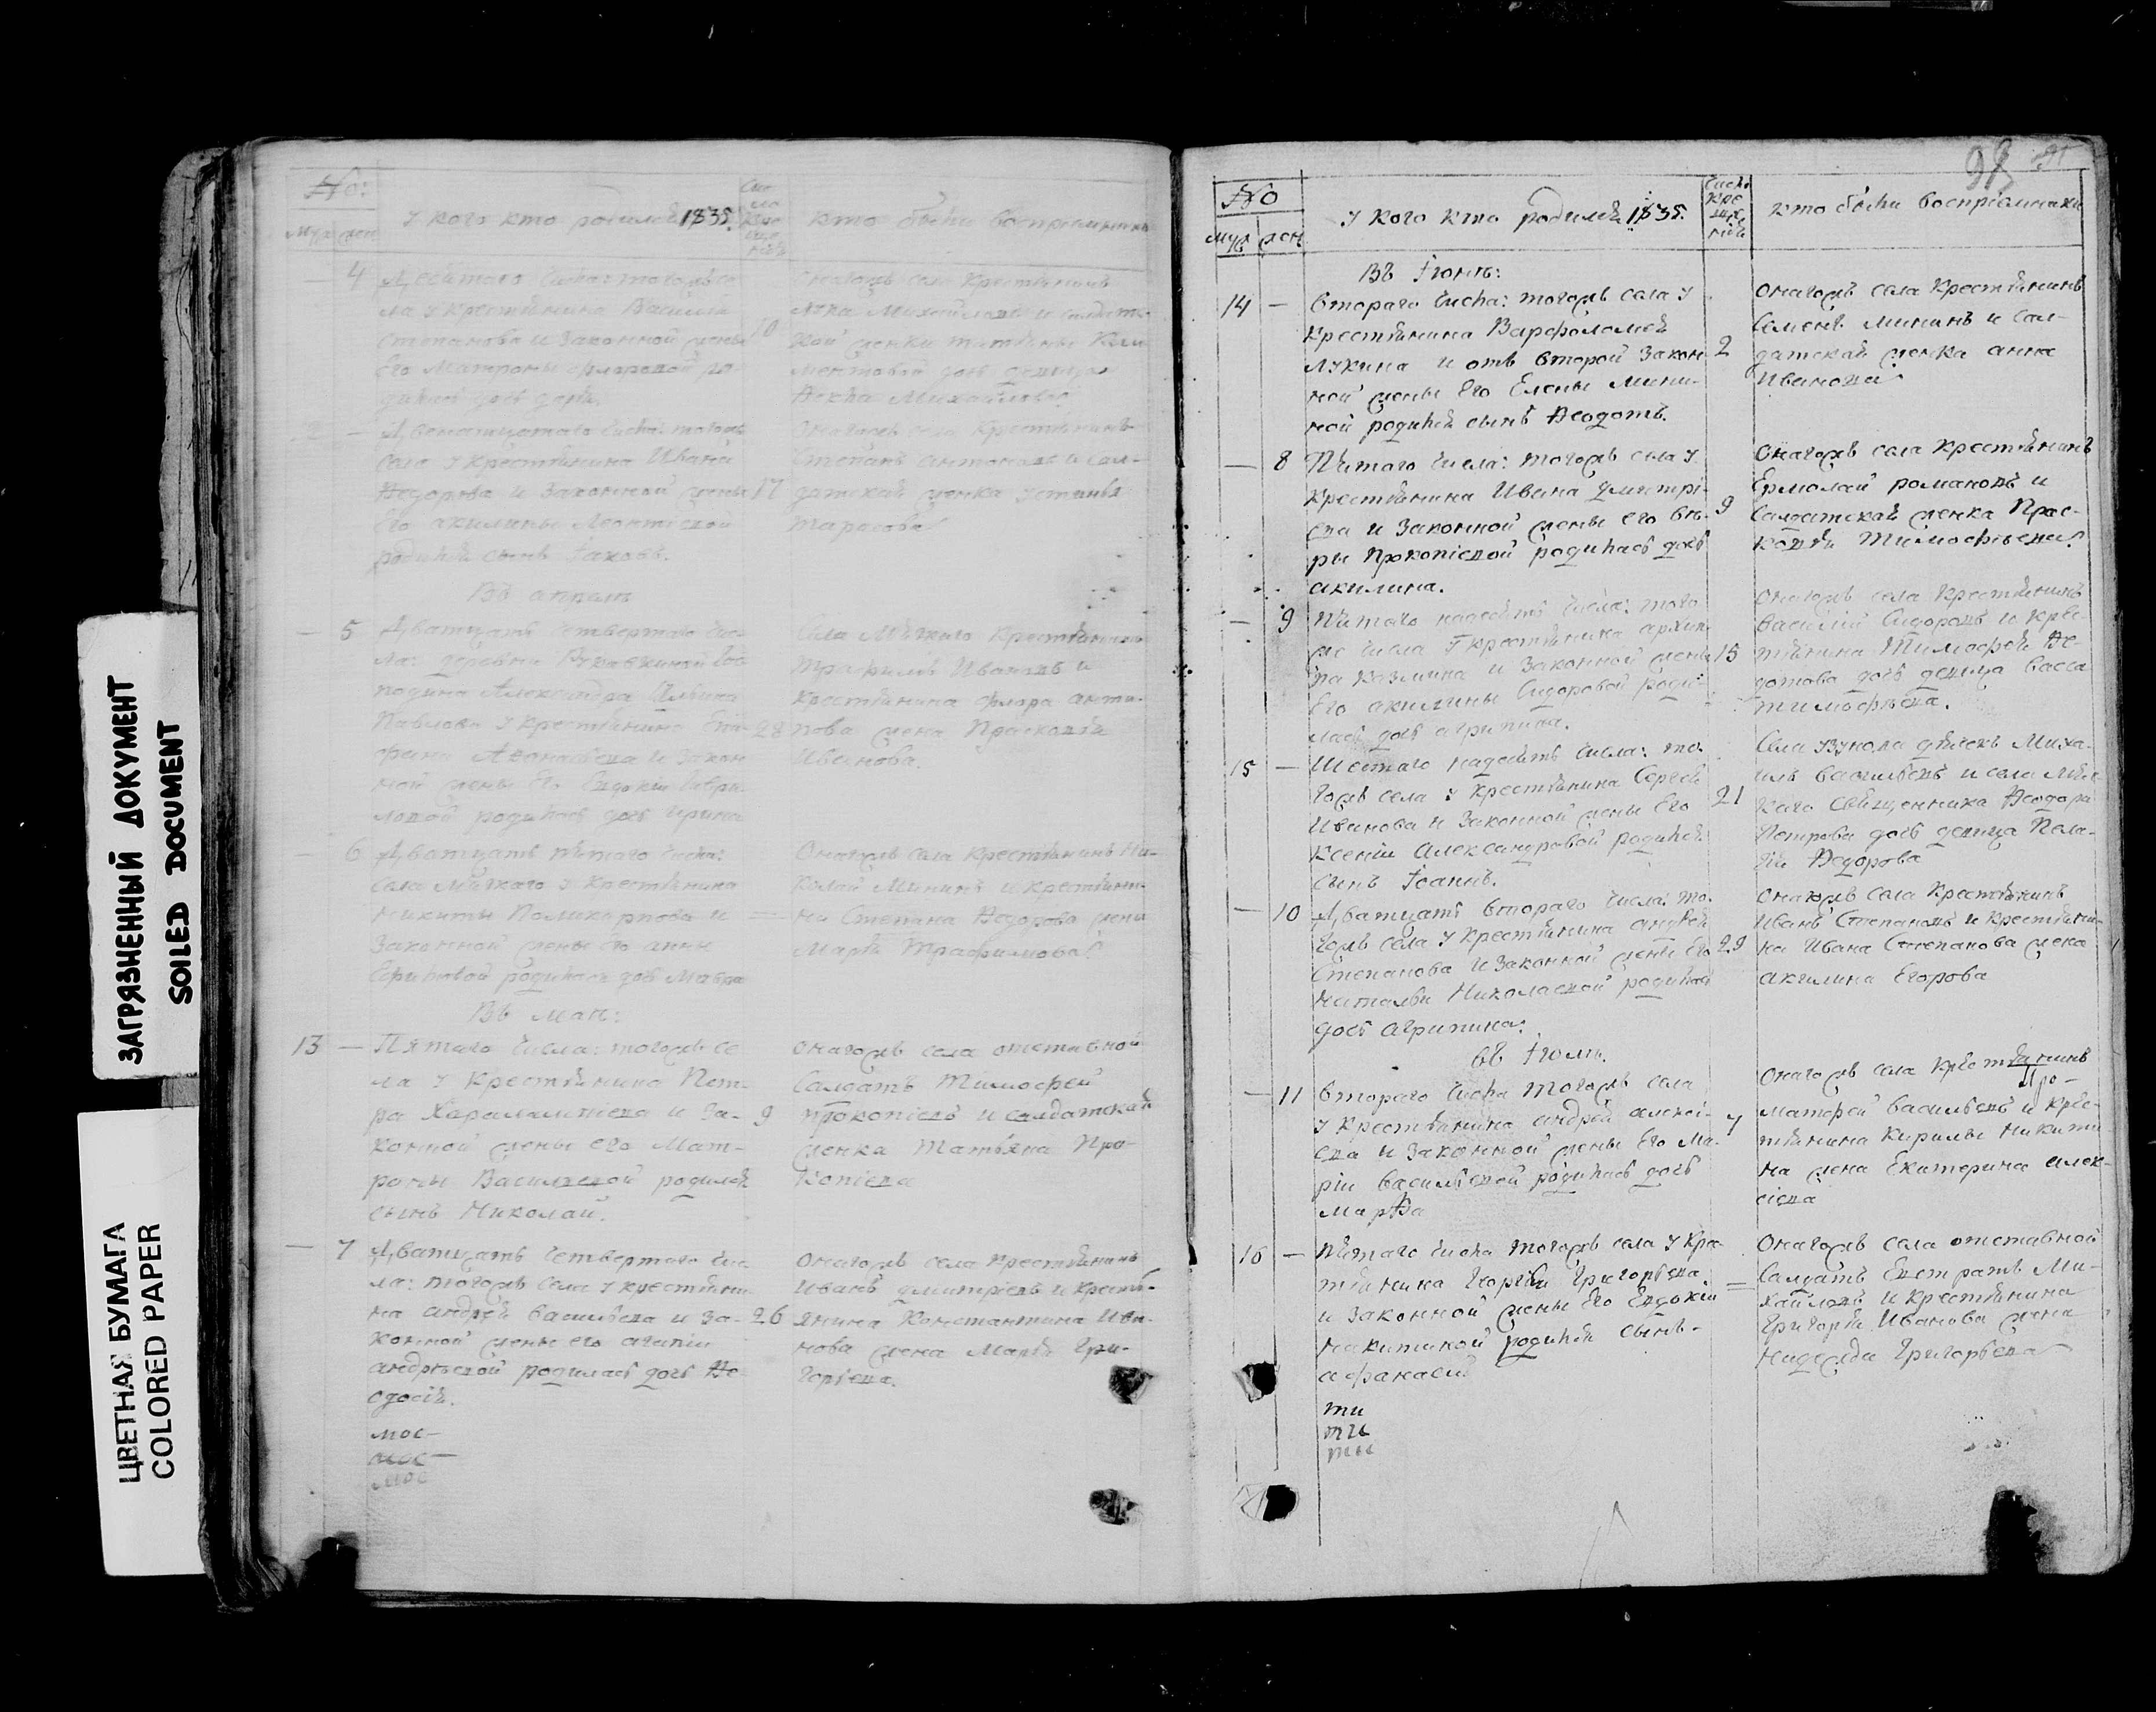 ЗАГРЯЗНЕННЫЙ ДОКУМЕНТ
SOILED DOCUMENT
ЦВЕТНАЯ БУМАГА
COLORED PAPER
No:
муж жен
У кого кто родился 1835.
Число крещенія
кто были воспріемники
4
Десятого числа: тогожъ се
ла у крестьянина Василія
Степанова и законной жены
его Матроны Флоровой ро-
дилась дочь
10
Онагожъ села крестьянинъ
Лука Михайловъ и солдатс-
кой женки Татьяны Кли
ментовой дочь девица
Михайлова
Двенатцатаго числа: тогожъ
села у крестьянина Ивана
Ѳедорова и законной жены
его акилины Леонтіевой
родился сынъ Іаковъ.
17
Онагожъ села крестьянинъ
Степанъ Антоновъ и сол-
датская женка Устинья
Тарасова
Въ апреле
5
Дватцать четвертаго чис-
ла: деревни господина Александра
Павлова у крестьянина
и закон
ной жены его Евдокіи Гаври-
ловой родилась дочь Ирина
28
Села Мягкаго крестьянинъ
Трафимъ Ивановъ и
крестьянина Флора анти-
пова жена Прасковья
Иванова.
6
Дватцать пятаго числа:
села Мягкаго у крестьянина
Никиты Поликарпова и
законной жены его анны
Ефимовой родилась дочь Мавра
=
Онагожъ села крестьянинъ Ни-
колай Мининъ и крестьяни-
на Степана Ѳедорова жена
Марья Трафимова
Въ маѣ:
13 —
Пятаго числа: тогожъ се
ла у крестьянина Пет-
ра Харалампіева и за-
конной жены его Мат-
роны Васильевой родился
сынъ Николай.
9
Онагожъ села отставной
Салдатъ Тимофей
Прокопіевъ и салдатская
женка Татьяна Про-
копіева
— 7
Дватцать четвертаго чис-
ла: тогожъ села у крестьяни-
на андрея васильева и за-
конной жены его агапіи
андрѣевой родилась дочь Ѳе-
одосія.
26
Онагожъ села крестьянинъ
Иванъ дмитріевъ и кресть-
янина Константина Ива-
нова жена Марья Гри-
горьева.
мос-
мос-
мос
98
No
муж жен
У кого кто родился 1835.
Число крещенія
кто были воспріемники
Въ Іюнѣ:
14 —
втораго числа: тогожъ села у
крестьянина Варфоломея
Лукина и отъ второй закон-
ной жены его Елены Мини-
ной родился сынъ Ѳеодотъ.
2
Онагожъ села крестьянинъ
Семенъ Мининъ и сол-
датская женка анна
Иванова
— 8
Пятаго числа: тогожъ села у
крестьянина Ивана дмитрі-
ева и законной жены его вѣ-
ры Прокопіевой родилась дочь
акилина.
9
Онагожъ села крестьянинъ
Ермолай романовъ и
Салдатская женка Прас-
ковья Тимофѣева
— 9
Пятаго надесять числа: того
же числа у крестьянина архип-
па Козмина и законной жены
его акилины Сидоровой роди-
лась дочь агрипина.
15
Онагожъ села крестьянинъ
василій Сидоровъ и крес-
тьянина Тимофея Ѳе-
дотова дочь девица васса
тимофѣева.
15 —
Шестаго надесять числа: то-
гожъ села у крестьянина Сергея
Иванова и законной жены его
Ксеніи александровой родился
сынъ Іоаннъ.
21
Села узунова дьячекъ Миха-
илъ васильевъ и села Мяг-
каго Священника Ѳеодора
Петрова дочь девица Пела-
гія Ѳедорова
— 10
Дватцать втораго числа: то-
гожъ села у крестьянина андрея
Степанова и законной жены его
натальи Николаевой родилась
дочь агрипина.
29
Онагожъ села крестьянинъ
Иванъ Степановъ и крестьяни-
на Ивана Степанова жена
акилина Егорова
въ Іюлѣ.
— 11
втораго числа тогожъ села
у крестьянина андрея алексі-
ева и законной жены его Ма-
ріи васильевой родилась дочь
Марѳа
7
Онагожъ села крестьянинъ
Матфей васильевъ и крес-
тьянина Кирилы Никити
на жена Екатерина алек-
сіева
16 —
Пятаго числа тогожъ села у кре-
стьянина Георгія Григорьева
и законной жены его Евдокіи
никитиной родился сынъ-
афанасій
=
Онагожъ села отставной
Салдатъ Евстратъ Ми-
хайловъ и крестьянина
Григорья Иванова жена
надежда Григорьева
ти
ти
ти